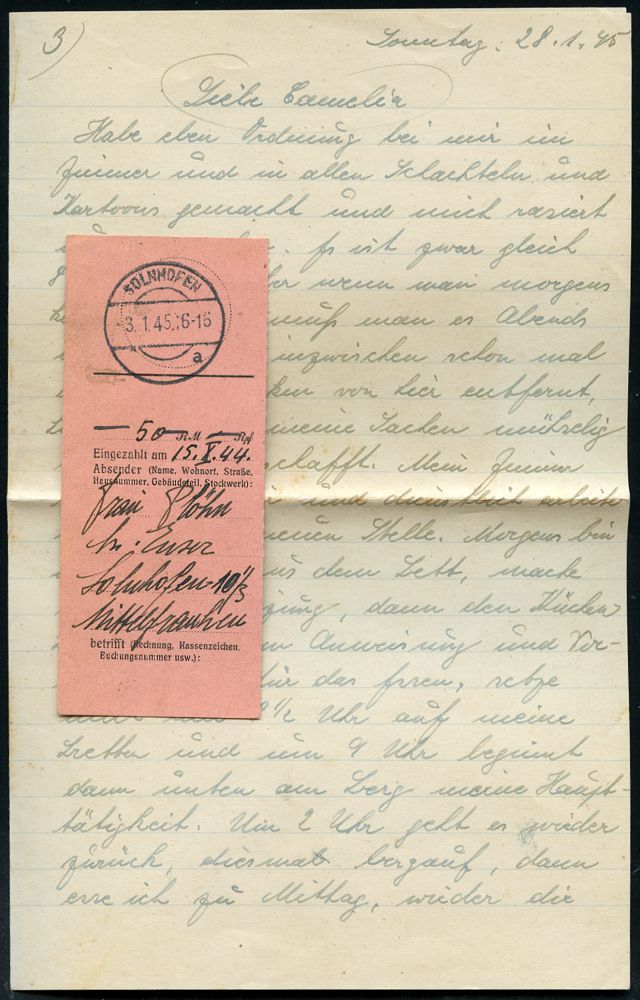 3)
Sonntag, 28.1.45
Liebe Camelia
Habe eben Ordnung bei mir im
Zimmer und in allen Schachteln und
Kartoons gemacht und mich rasiert
. Es ist zwar gleich
wenn man morgens
muß man es Abends
inzwischen schon mal
von hier entfernt,
meine Sachen mühselig
schafft. Mein Zimmer
und dienstlich arbeite
neuen Stelle. Morgens bin
aus dem Bett, mache
, dann den Küchen
Anweisung und Vor-
für das Essen, setze
1/2 Uhr auf meine
Bretten und um 9 Uhr beginnt
dann unten am Berg meine Haupt-
tätigkeit. Um 2 Uhr geht es wieder
zurück, diesmal bergauf, dann
esse ich zu Mittag, wieder die
SOLNHOFEN
-3.1.45.16-16
a
— 50 — RM — Rpf
Eingezahlt am 15.X.44.
Absender (Name, Wohnort, Straße,
Hausnummer, Gebäudeteil, Stockwerk):
Frau Plöhn
Solnhofen 10 1/3
Mittelfranken
betrifft (Rechnung, Kassenzeichen,
Buchungsnummer usw.):